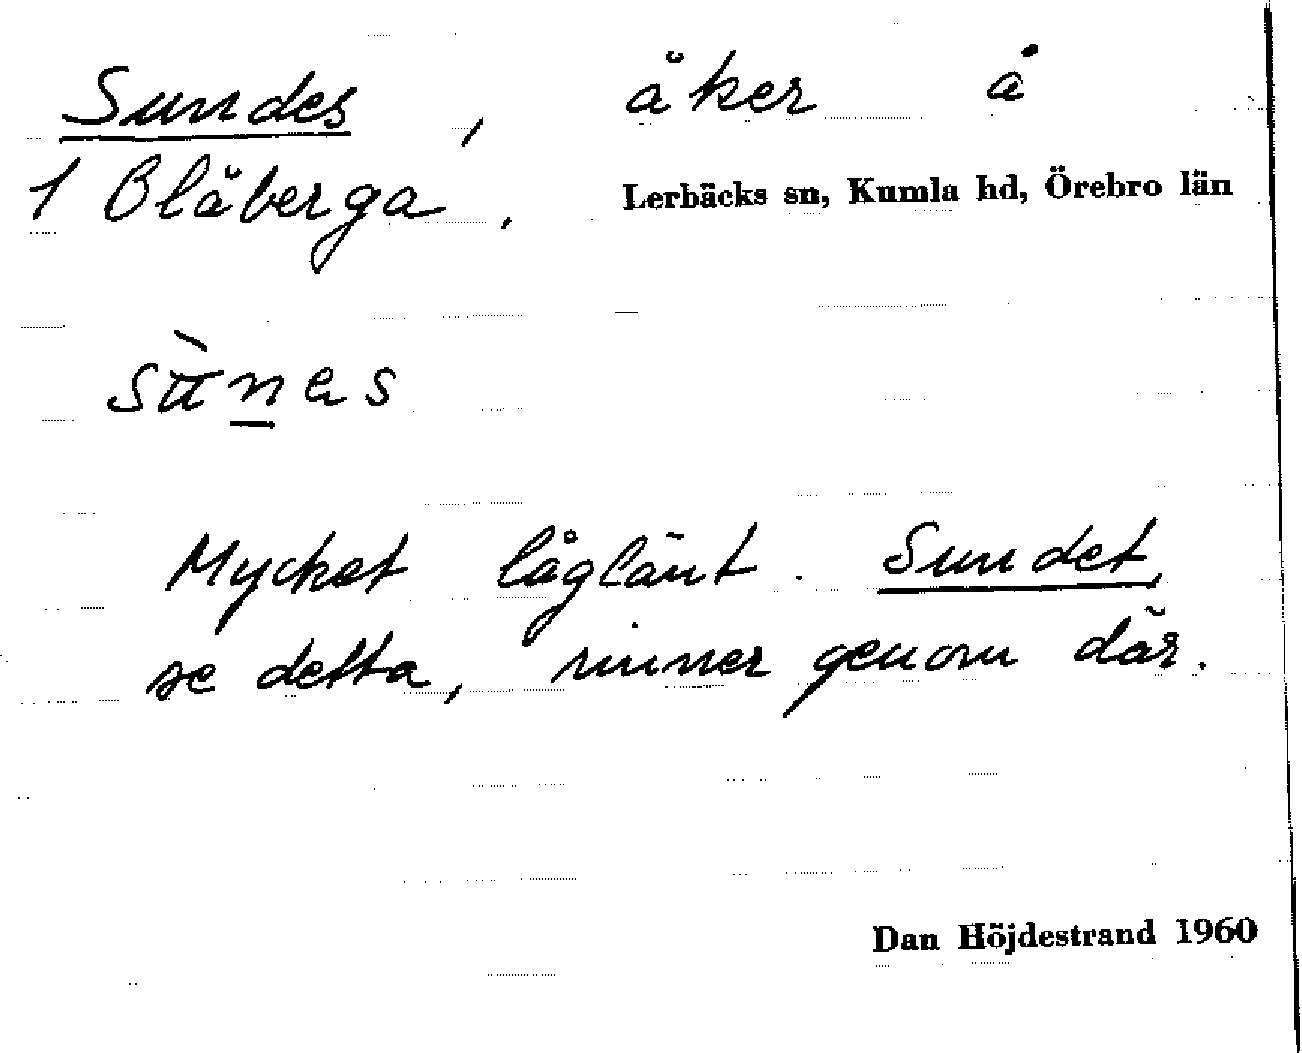 Sundes, åker å
1 Blåberga. Lerbäcks sn, Kumla hd, Örebro län
Mycket låglänt. Sundet,
se detta, rinner genom där.
Dan Höjdestrand 1960